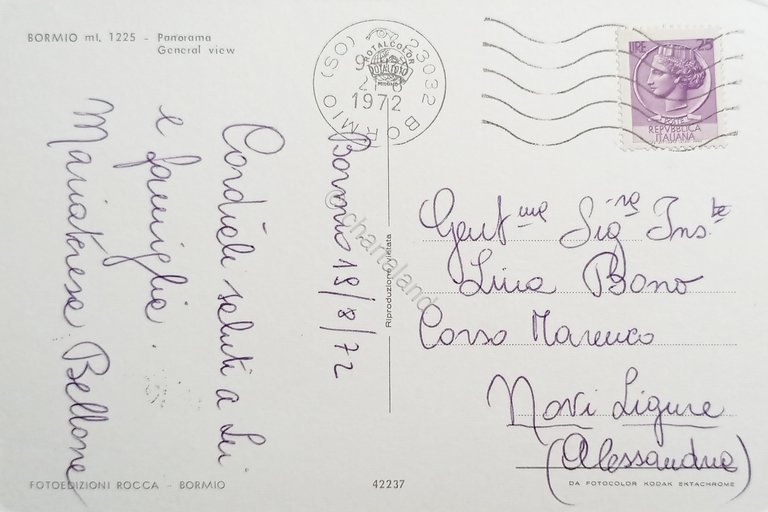 BORMIO mt. 1225 - Panorama
General view
Cordiali saluti a Lei
e famiglia.
Mariateresa Bellone
Bormio 18/8/72
23032 BORMIO (SO)
ROTALCOLOR
1972
LIRE 25
REPVBBLICA
ITALIANA
Gent.ma Sig.na Ins.te
Lina Bono
Corso Marenco
Novi Ligure
(Alessandria)
Riproduzione vietata
© chartaland
FOTOEDIZIONI ROCCA - BORMIO
42237
DA FOTOCOLOR KODAK EKTACHROME